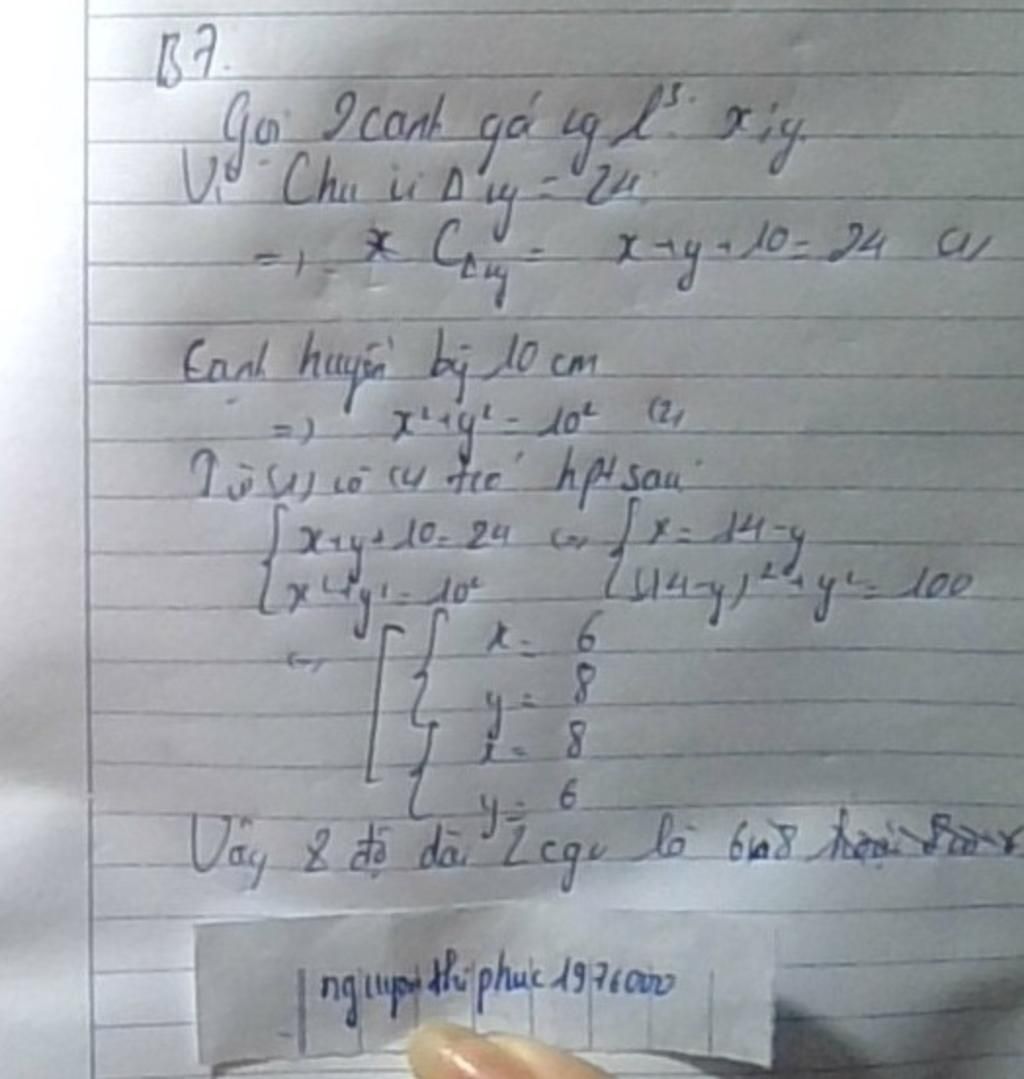 B7.
Gọi 2 cạnh gó vg l³: x; y.
Vì Chu vi Δ vg = 24
=> * C_Δvg = x + y + 10 = 24 (1)
Cạnh huyền bg 10 cm
=> x² + y² = 10² (2)
Từ (1) có hpt sau
{ x + y + 10 = 24 <=> { x = 14 - y
{ x² + y² = 10² { (14 - y)² + y² = 100
<=> [ { x = 6
y = 8
{ x = 8
y = 6
Vậy 2 độ dài 2 cgv là 6 và 8
nguyen thi phuc 1976000